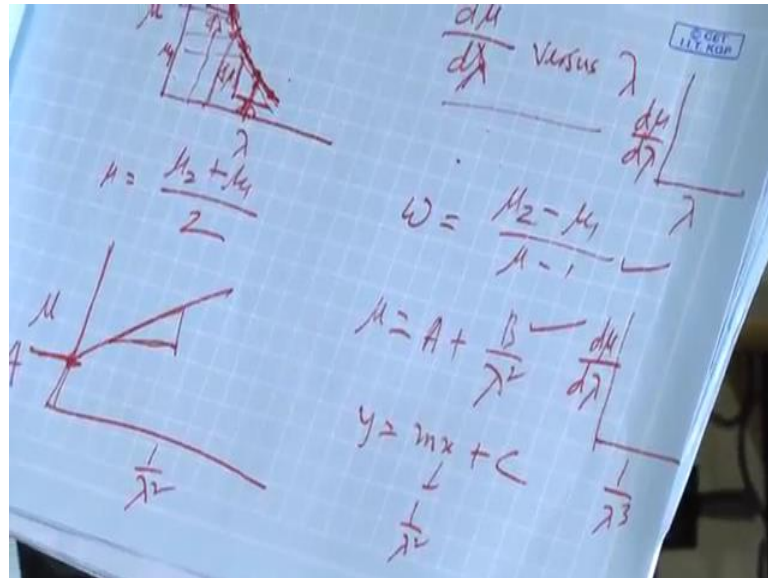 μ
dλ
μ₁
dμ
λ
dμ/dλ Versus λ
© CET
I.I.T. KGP
dμ/dλ
λ
μ = (μ₂ + μ₁)/2
ω = (μ₂ - μ₁)/(μ - 1)
μ
A
1/λ²
μ = A + B/λ²
y = mx + C
↓
1/λ²
dμ/dλ
1/λ³